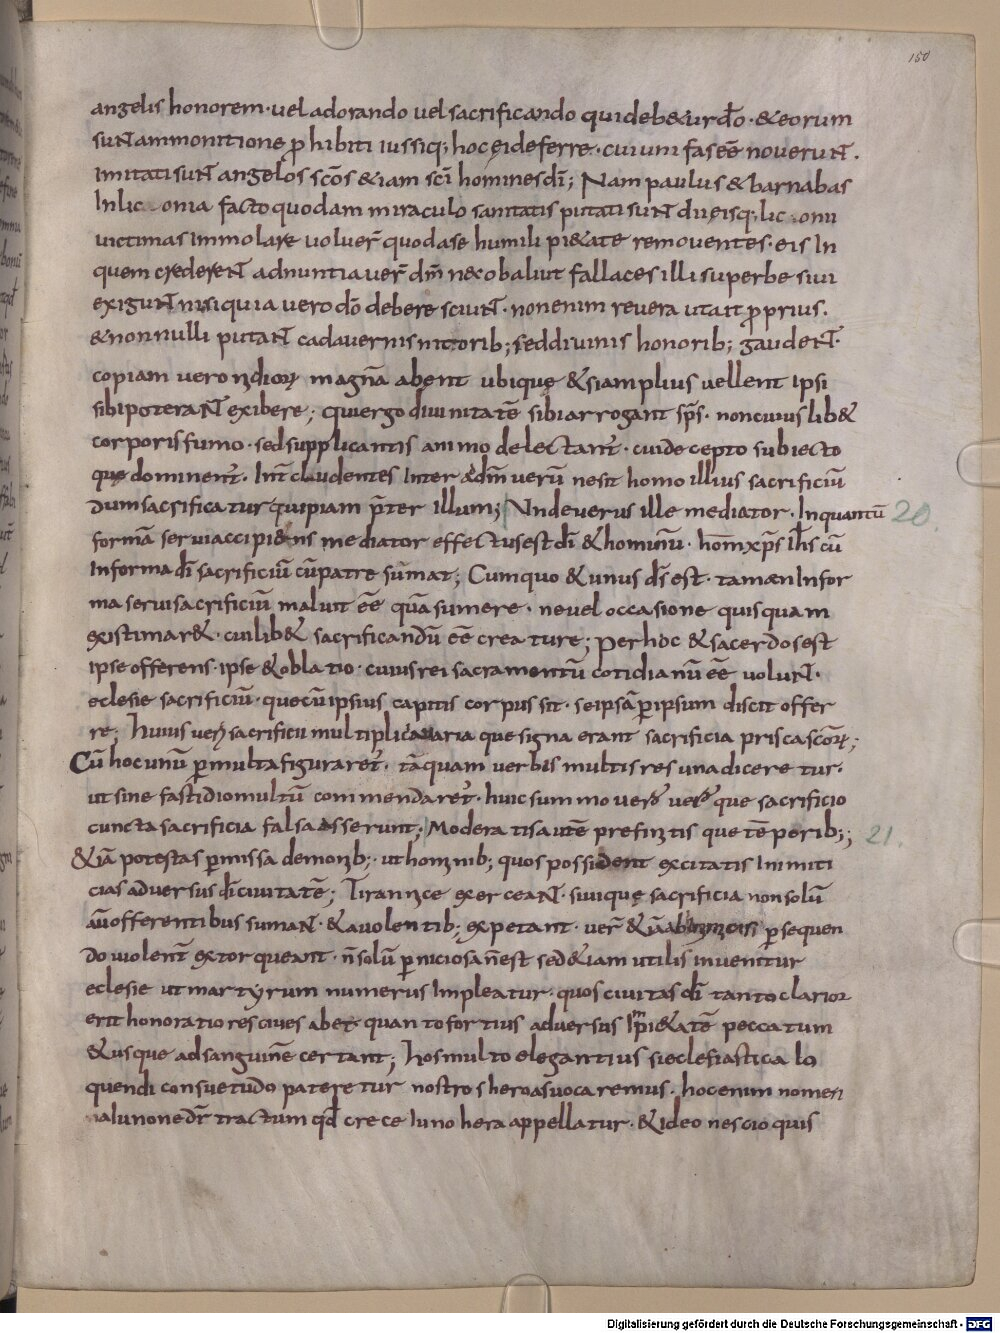 150
angelis honorem · uel adorando uel sacrificando qui debetur dō · & eorum
sunt ammonitione ꝓhibiti iussiq; hoc ei deferre · cui uni fas eē nouerunt .
Imitati sunt angelos scōs & iam sci homines dī; Nam paulus & barnabas
In lic onia facto quodam miraculo sanitatis putati sunt dii eisq; lic onii
uictimas Immolare uoluer̄ quod a se humili pi&ate remouentes · eis In
quem crederent adnuntiauer̄ dm̄ nec ob aliut fallaces illi superbe siui
exigunt nisi quia uero dō debere sciunt · non enim reuera ut ait ꝓprius .
& non nulli putant cadauernis nitorib; sed diuinis honorib; gaudent ·
copiam uero magnā abent ubique & si amplius uellent ipsi
sibi poterant exibere; qui ergo diuinitatē sibi arrogant sp̄s · non cuius lib&
corporis fumo · sed supplicantis animo delectant̄ · cui decepto subiecto
que dominent̄ · Int̄cludentes Inter ad dm̄ uerū nesit homo illius sacrificiū
Dum sacrificatur quipiam p̄ter illum; Unde uerus ille mediator · In quantū 20.
formā serui accipi&ns mediator effectus est dī & hominū · hom̄ xp̄s ih̄s cū
In forma dī sacrificiū cū patre sūmat; Cum quo & unus d̄s est · tamen In for
ma serui sacrificiū maluit eē quā sumere · ne uel occasione quisquam
existimar& · cuilib& sacrificandū eē creature; Per hoc & sacerdos est
ipse offerens · ipse & oblatio · cuius rei sacramentū cotidianū eē uolunt ·
eclesie sacrificiū · que cū ipsius capitis corpus sit · se ipsā per ipsum discit offer
re; huius ueri sacrificii multiplicia uaria que signa erant sacrificia prisca scōrum;
Cū hoc unū per multa figuraret̄ · tāquam uerbis multis res una diceretur ·
ut sine fastidio multū commendaret̄ · huic summo uero que sacrificio
cuncta sacrificia falsa asserunt; Moderatis autē prefinitis que tēporib; ; 21.
& iā potestas permissa demonib; · ut hominib; quos possident excitatis Inimiti
cias aduersus dī ciuitatē; Tirannice exerceant · siuique sacrificia non solū
au offerentibus sumant · & a uolentib; expetant · uer̄ & iā ab persequen
do uiolent̄ extorqueant · n̄ solū perniciosa n̄ est sed & iam utilis inuenitur
eclesie ut martyrum numerus Impleatur · quos ciuitas dī tanto clarior
erit honoratiores ciues abet · quanto fortius aduersus Impi&atē peccatum
& usque ad sanguinē certant; hos multo elegantius si eclesiastica lo
quendi consuetudo pateretur nostros heroas uocaremus · hoc enim nomen
a Iunone dr̄ tractum qd̄ crece Iuno hera appellatur · & ideo nescio quis
Digitalisierung gefördert durch die Deutsche Forschungsgemeinschaft - DFG